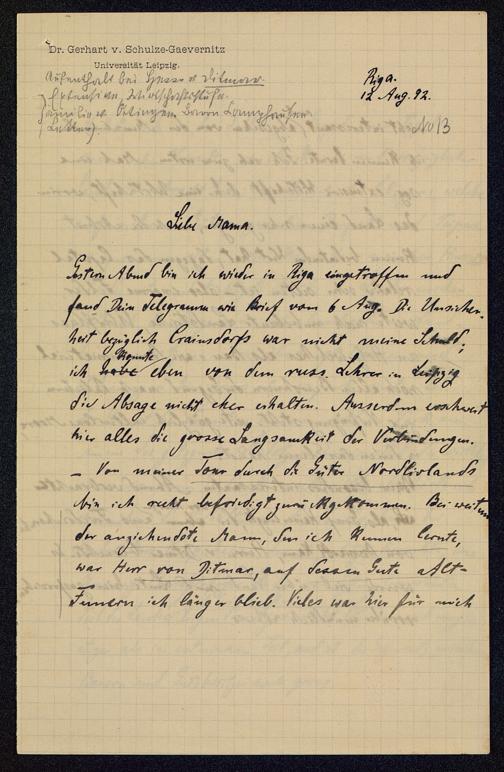 Dr. Gerhart v. Schulze-Gaevernitz
Universität Leipzig.
Aufenthalt bei Herrn v Ditmar.
Extensive, Wirtschaftsstufe.
Familie v Oettingen Baron Campenhausen
(Letten)
Riga.
12 Aug. 92.
No 13
Liebe Mama.
Gestern Abend bin ich wieder in Riga eingetroffen und
fand Dein Telegramm wie Brief vom 6 Aug. Die Unsicher-
heit bezüglich Crainsdorfs war nicht meine Schuld;
ich konnte eben von dem russ. Lehrer in Leipzig
die Absage nicht eher erhalten. Ausserdem erschwert
hier alles die grosse Langsamkeit der Verbindungen.
– Von meiner Tour durch die Güter Nordlivlands
bin ich recht befriedigt zurückgekommen. Bei weitem
der anziehendste Mann, den ich kennen lernte,
war Herr von Ditmar, auf dessen Gute Alt-
Fennern ich länger blieb. Vieles war hier für mich